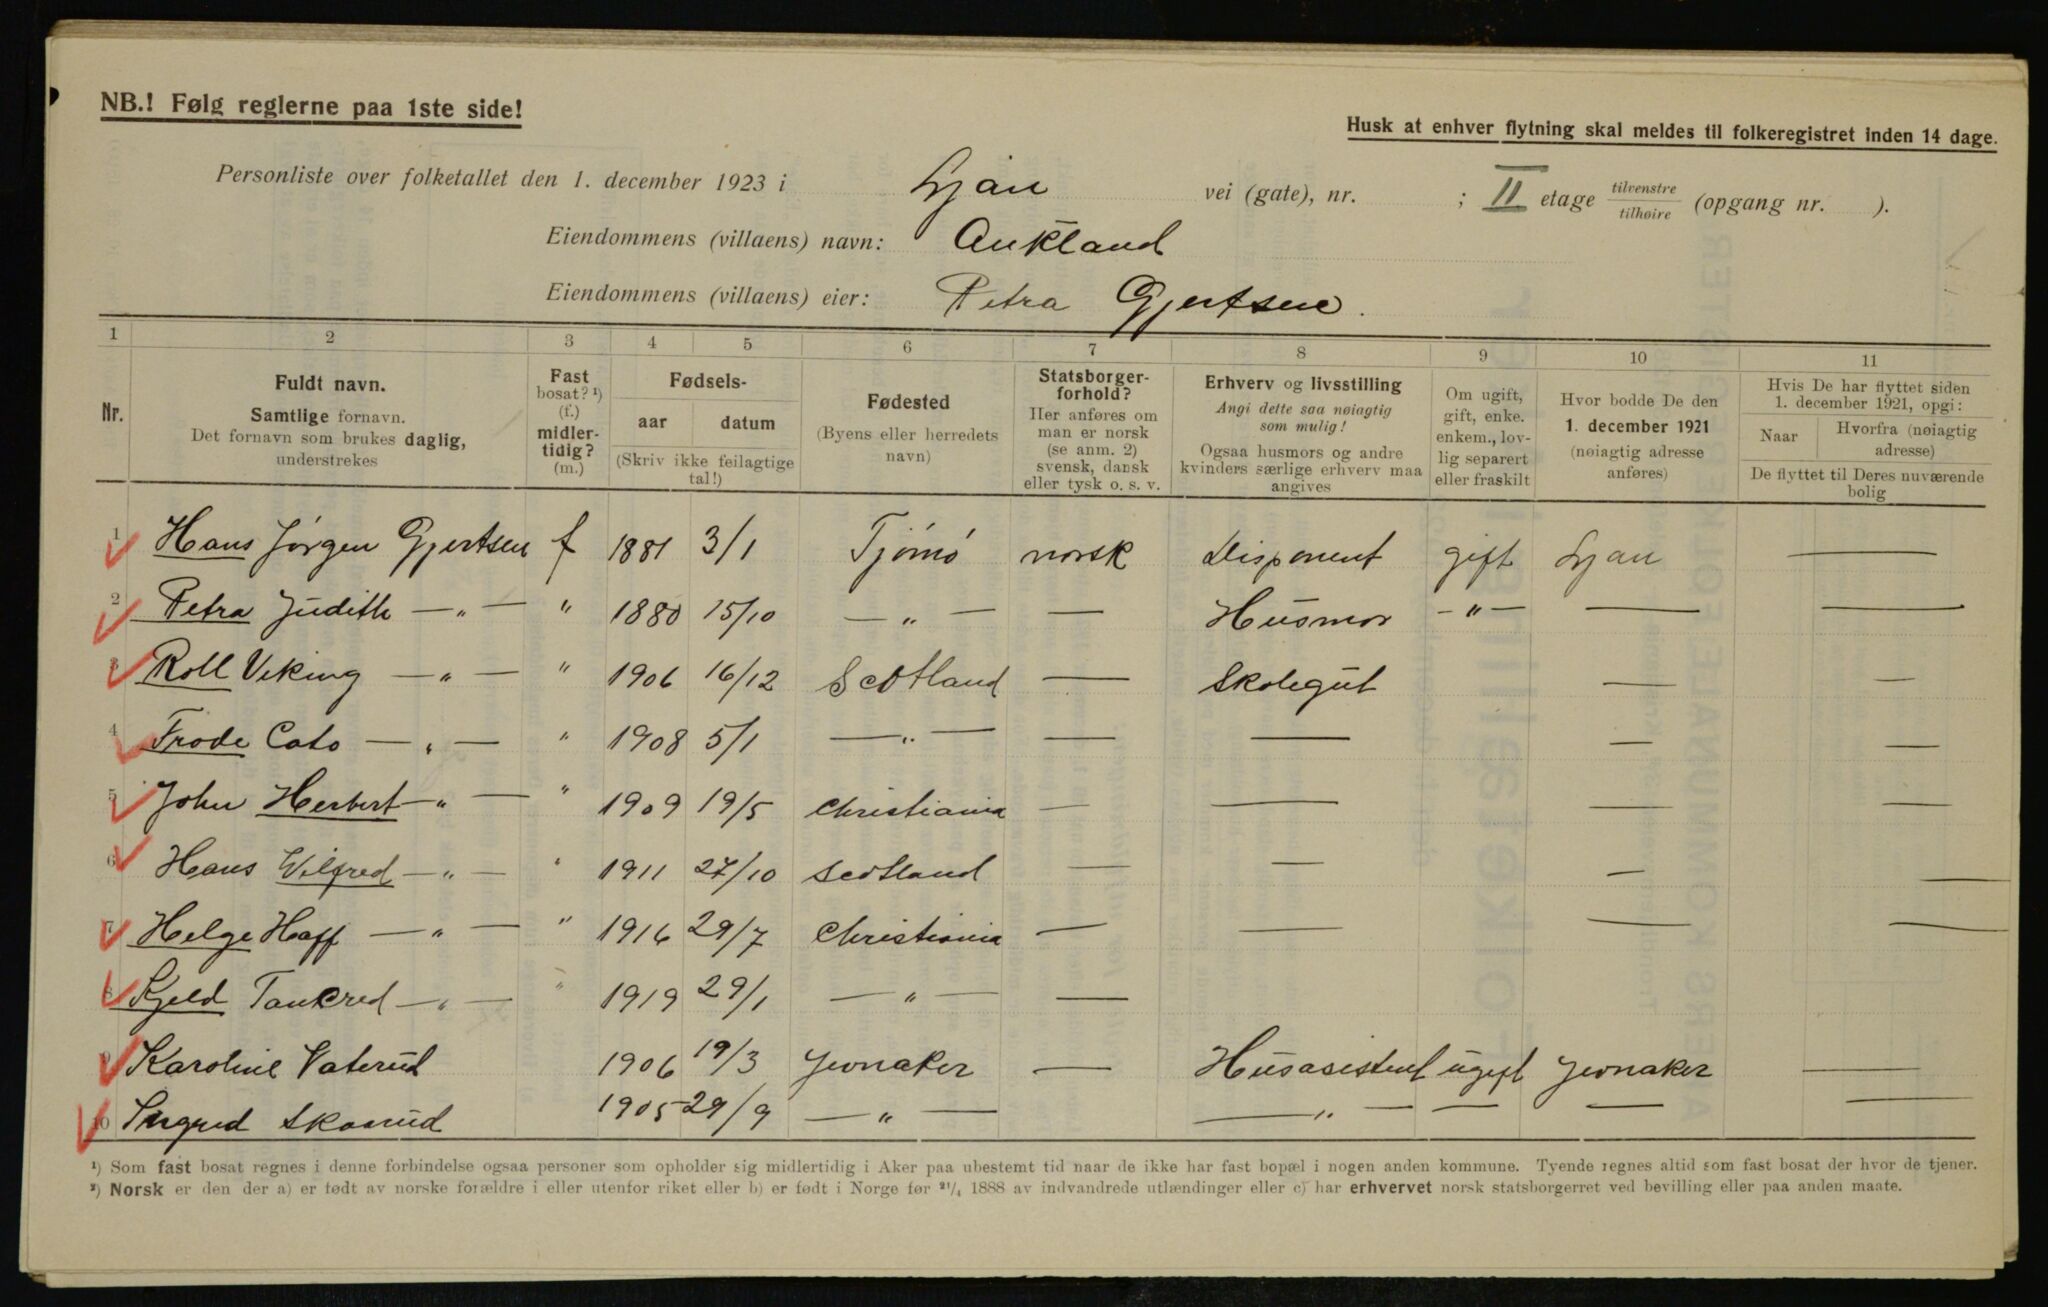 NB.! Følg reglerne paa 1ste side!
Husk at enhver flytning skal meldes til folkeregistret inden 14 dage.
Personliste over folketallet den 1. december 1923 i Ljan vei (gate), nr. ; II etage tilvenstre / tilhøire (opgang nr. ).
Eiendommens (villaens) navn: Aukland
Eiendommens (villaens) eier: Petra Gjertsen.
1 2 3 4 5 6 7 8 9 10 11
Nr.
Fuldt navn.
Samtlige fornavn.
Det fornavn som brukes daglig,
understrekes
Fast
bosat? ¹)
(f.)
midler-
tidig?
(m.)
Fødsels-
aar datum
(Skriv ikke feilagtige
tal!)
Fødested
(Byens eller herredets
navn)
Statsborger-
forhold?
Her anføres om
man er norsk
(se anm. 2)
svensk, dansk
eller tysk o. s. v.
Erhverv og livsstilling
Angi dette saa nøiagtig
som mulig!
Ogsaa husmors og andre
kvinders særlige erhverv maa
angives
Om ugift,
gift, enke.
enkem., lov-
lig separert
eller fraskilt
Hvor bodde De den
1. december 1921
(nøiagtig adresse
anføres)
Hvis De har flyttet siden
1. december 1921, opgi:
Naar Hvorfra (nøiagtig
adresse)
De flyttet til Deres nuværende
bolig
1 Hans Jørgen Gjertsen f 1881 3/1 Tjömö norsk Disponent gift Ljan —
2 Petra Judith — „ — „ 1880 15/10 — „ — — Husmor — „ — — —
3 Roll Viking — „ — „ 1906 16/12 Scotland — Skolegut — —
4 Frode Cato — „ — „ 1908 5/1 — „ — — — — —
5 John Herbert — „ — „ 1909 19/5 Christiania — — — —
6 Hans Wilfred — „ — „ 1911 27/10 Scotland — — — —
7 Helge Haff — „ — „ 1916 29/7 Christiania — — — —
8 Kjeld Tankred — „ — „ 1919 29/1 — „ — —
9 Karoline Vaterud 1906 19/3 Jevnaker — Husasistent ugift Jevnaker —
10 Ingrid Skaarud 1905 29/9 — „ — — „ — — — —
¹) Som fast bosat regnes i denne forbindelse ogsaa personer som opholder sig midlertidig i Aker paa ubestemt tid naar de ikke har fast bopæl i nogen anden kommune. Tyende regnes altid som fast bosat der hvor de tjener.
²) Norsk er den der a) er født av norske forældre i eller utenfor riket eller b) er født i Norge før 21/4 1888 av indvandrede utlændinger eller c) har erhvervet norsk statsborgerret ved bevilling eller paa anden maate.